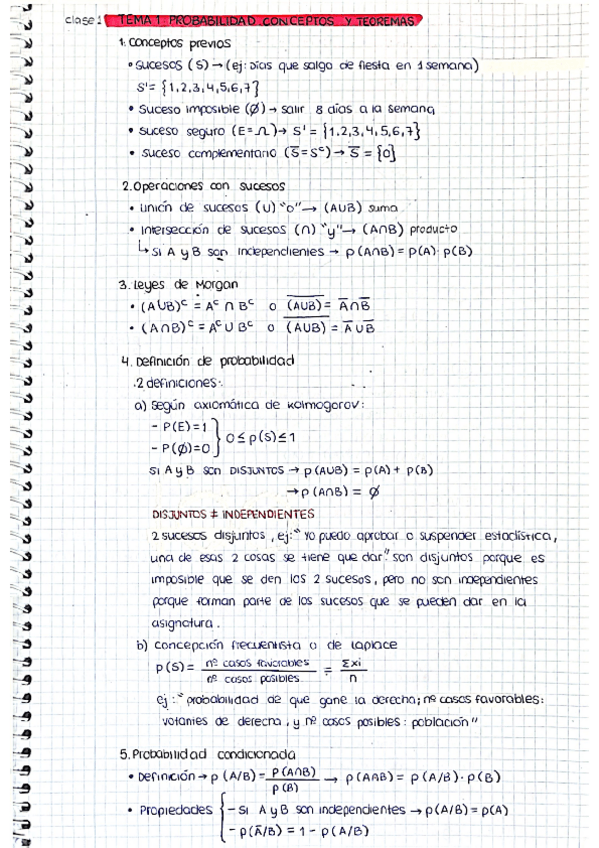 clase 1 TEMA 1 PROBABILIDAD. CONCEPTOS Y TEOREMAS
1. Conceptos previos
• Sucesos (S) → (ej: Días que salgo de fiesta en 1 semana)
S' = {1,2,3,4,5,6,7}
• Suceso imposible (Ø) → salir 8 días a la semana
• suceso seguro (E=Ω) → S' = {1,2,3,4,5,6,7}
• suceso complementario (S̅=Sᶜ) → S̅ = {0}
2. Operaciones con sucesos
• unión de sucesos (U) "o" → (AUB) suma
• Intersección de sucesos (∩) "y" → (A∩B) producto
↳ si A y B son independientes → p(A∩B) = p(A)· p(B)
3. Leyes de Morgan
• (AUB)ᶜ = Aᶜ ∩ Bᶜ o (AUB)̅ = A̅∩B̅
• (A∩B)ᶜ = Aᶜ U Bᶜ o (AUB)̅ = A̅UB̅
4. Definición de probabilidad
·2 definiciones·
a) según axiomática de Kolmogorov:
- P(E)=1
- P(Ø)=0 } 0 ≤ p(S) ≤ 1
SI A y B SON DISJUNTOS → p(AUB) = p(A) + p(B)
→ p(A∩B) = Ø
DISJUNTOS ≠ INDEPENDIENTES
2 sucesos disjuntos, ej: "yo puedo aprobar o suspender estadística,
una de esas 2 cosas se tiene que dar." son disjuntos porque es
imposible que se den los 2 sucesos, pero no son independientes
porque forman parte de los sucesos que se pueden dar en la
asignatura.
b) concepción frecuentista o de Laplace
p(S) = nº casos favorables / nº casos posibles = Σxi / n
ej: "probabilidad de que gane la derecha; nº casos favorables:
votantes de derecha, y nº casos posibles: población"
5. Probabilidad condicionada
• Definición → p(A/B) = P(A∩B) / p(B) → p(A∩B) = p(A/B)· p(B)
• Propiedades { - si A y B son independentes → p(A/B) = p(A)
- p(A̅/B) = 1 - p(A/B)